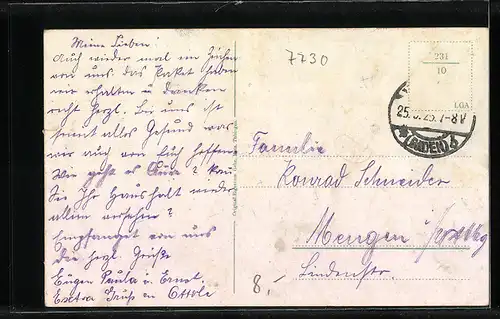 Meine Lieben!
Auch wieder mal ein Zeichen
von uns. Das Paket haben
wir erhalten u danken
recht herzl. Bei uns ist
soweit alles Gesund was
wir auch von Euch hoffen.
Wie geht es ? kann
Sie Ihr Haushalt wieder
allein versehen?
Empfanget von uns
die herzl. Grüße
Eugen Paula u. Ernst.
Extra Gruß an Ottole
7230
231
10
LGA
25. 25. 7-8V
(BADEN)
Familie
Konrad Schneider
Mengen
Lindenstr.
8.-